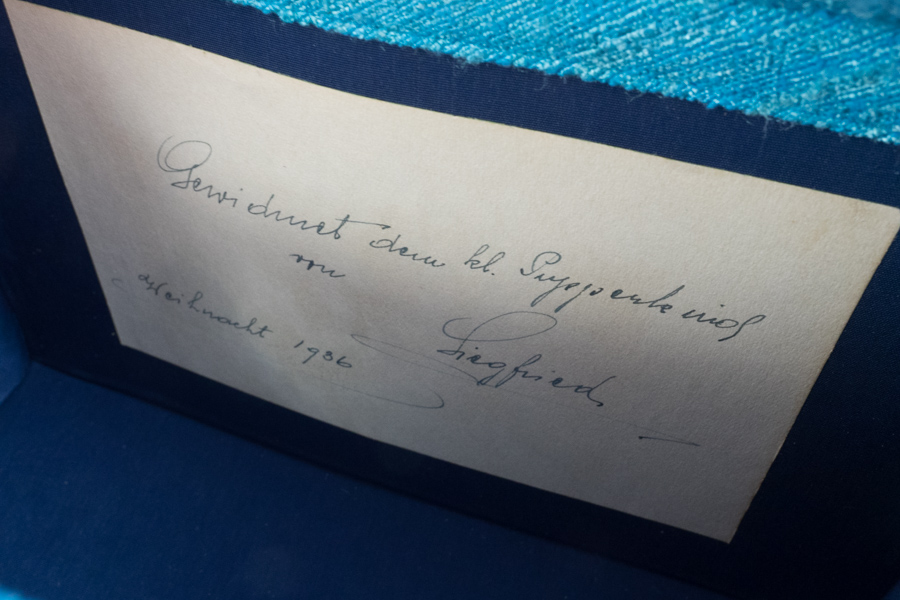 Gewidmet dem kl. Puppenkind
von
Siegfried.
Weihnacht 1936